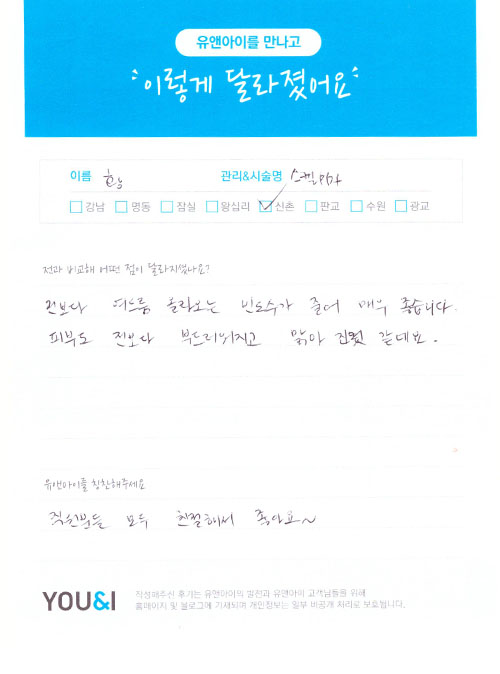 유앤아이를 만나고
이렇게 달라졌어요
이름 관리&시술명 스킨PDT
강남 명동 잠실 왕십리 신촌 판교 수원 광교
전과 비교해 어떤 점이 달라지셨나요?
전보다 여드름 올라오는 빈도수가 줄어 매우 좋습니다.
피부도 전보다 부드러워지고 맑아 진것 같네요.
유앤아이를 칭찬해주세요
직원분들 모두 친절해서 좋아요~
YOU&I
작성해주신 후기는 유앤아이의 발전과 유앤아이 고객님들을 위해
홈페이지 및 블로그에 기재되며 개인정보는 일부 비공개 처리로 보호됩니다.